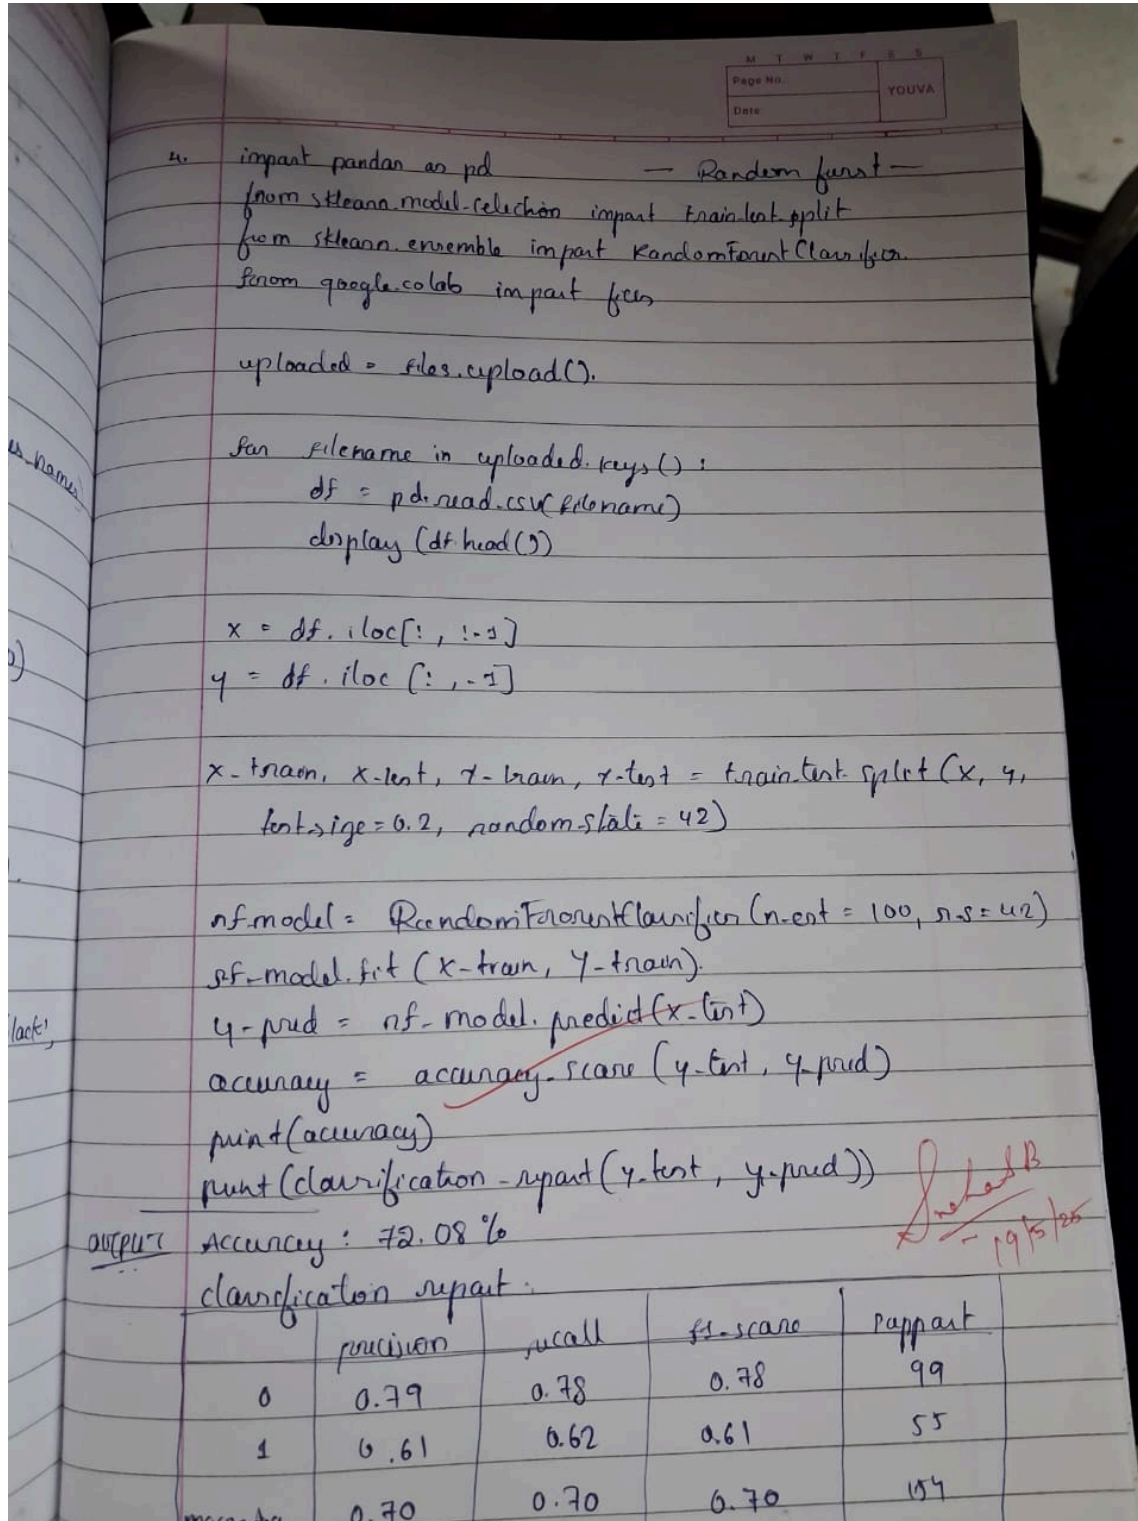 M T W T F S S
Page No.
Date
YOUVA
4. import pandas as pd — Random forest —
from sklearn.model-selection import train-test-split
from sklearn.ensemble import RandomForestClassifier
from google.colab import files
uploaded = files.upload().
for filename in uploaded.keys() :
df = pd.read.csv(filename)
display (df.head())
x = df.iloc[: , :-1]
y = df.iloc [: , -1]
x-train, x-test, y-train, y-test = train-test-split (x, y,
test-size = 0.2, random-state = 42)
rf-model = RandomForestClassifier (n-est = 100, r.s = 42)
rf-model.fit (x-train, y-train).
y-pred = rf-model.predict (x-test)
accuracy = accuracy-score (y-test, y-pred)
print (accuracy)
print (classification-report (y-test, y-pred))
19/5/25
OUTPUT Accuracy : 72.08 %
classification report :
precision recall f1-score support
0 0.79 0.78 0.78 99
1 0.61 0.62 0.61 55
0.70 0.70 0.70 154
s-names
lack',